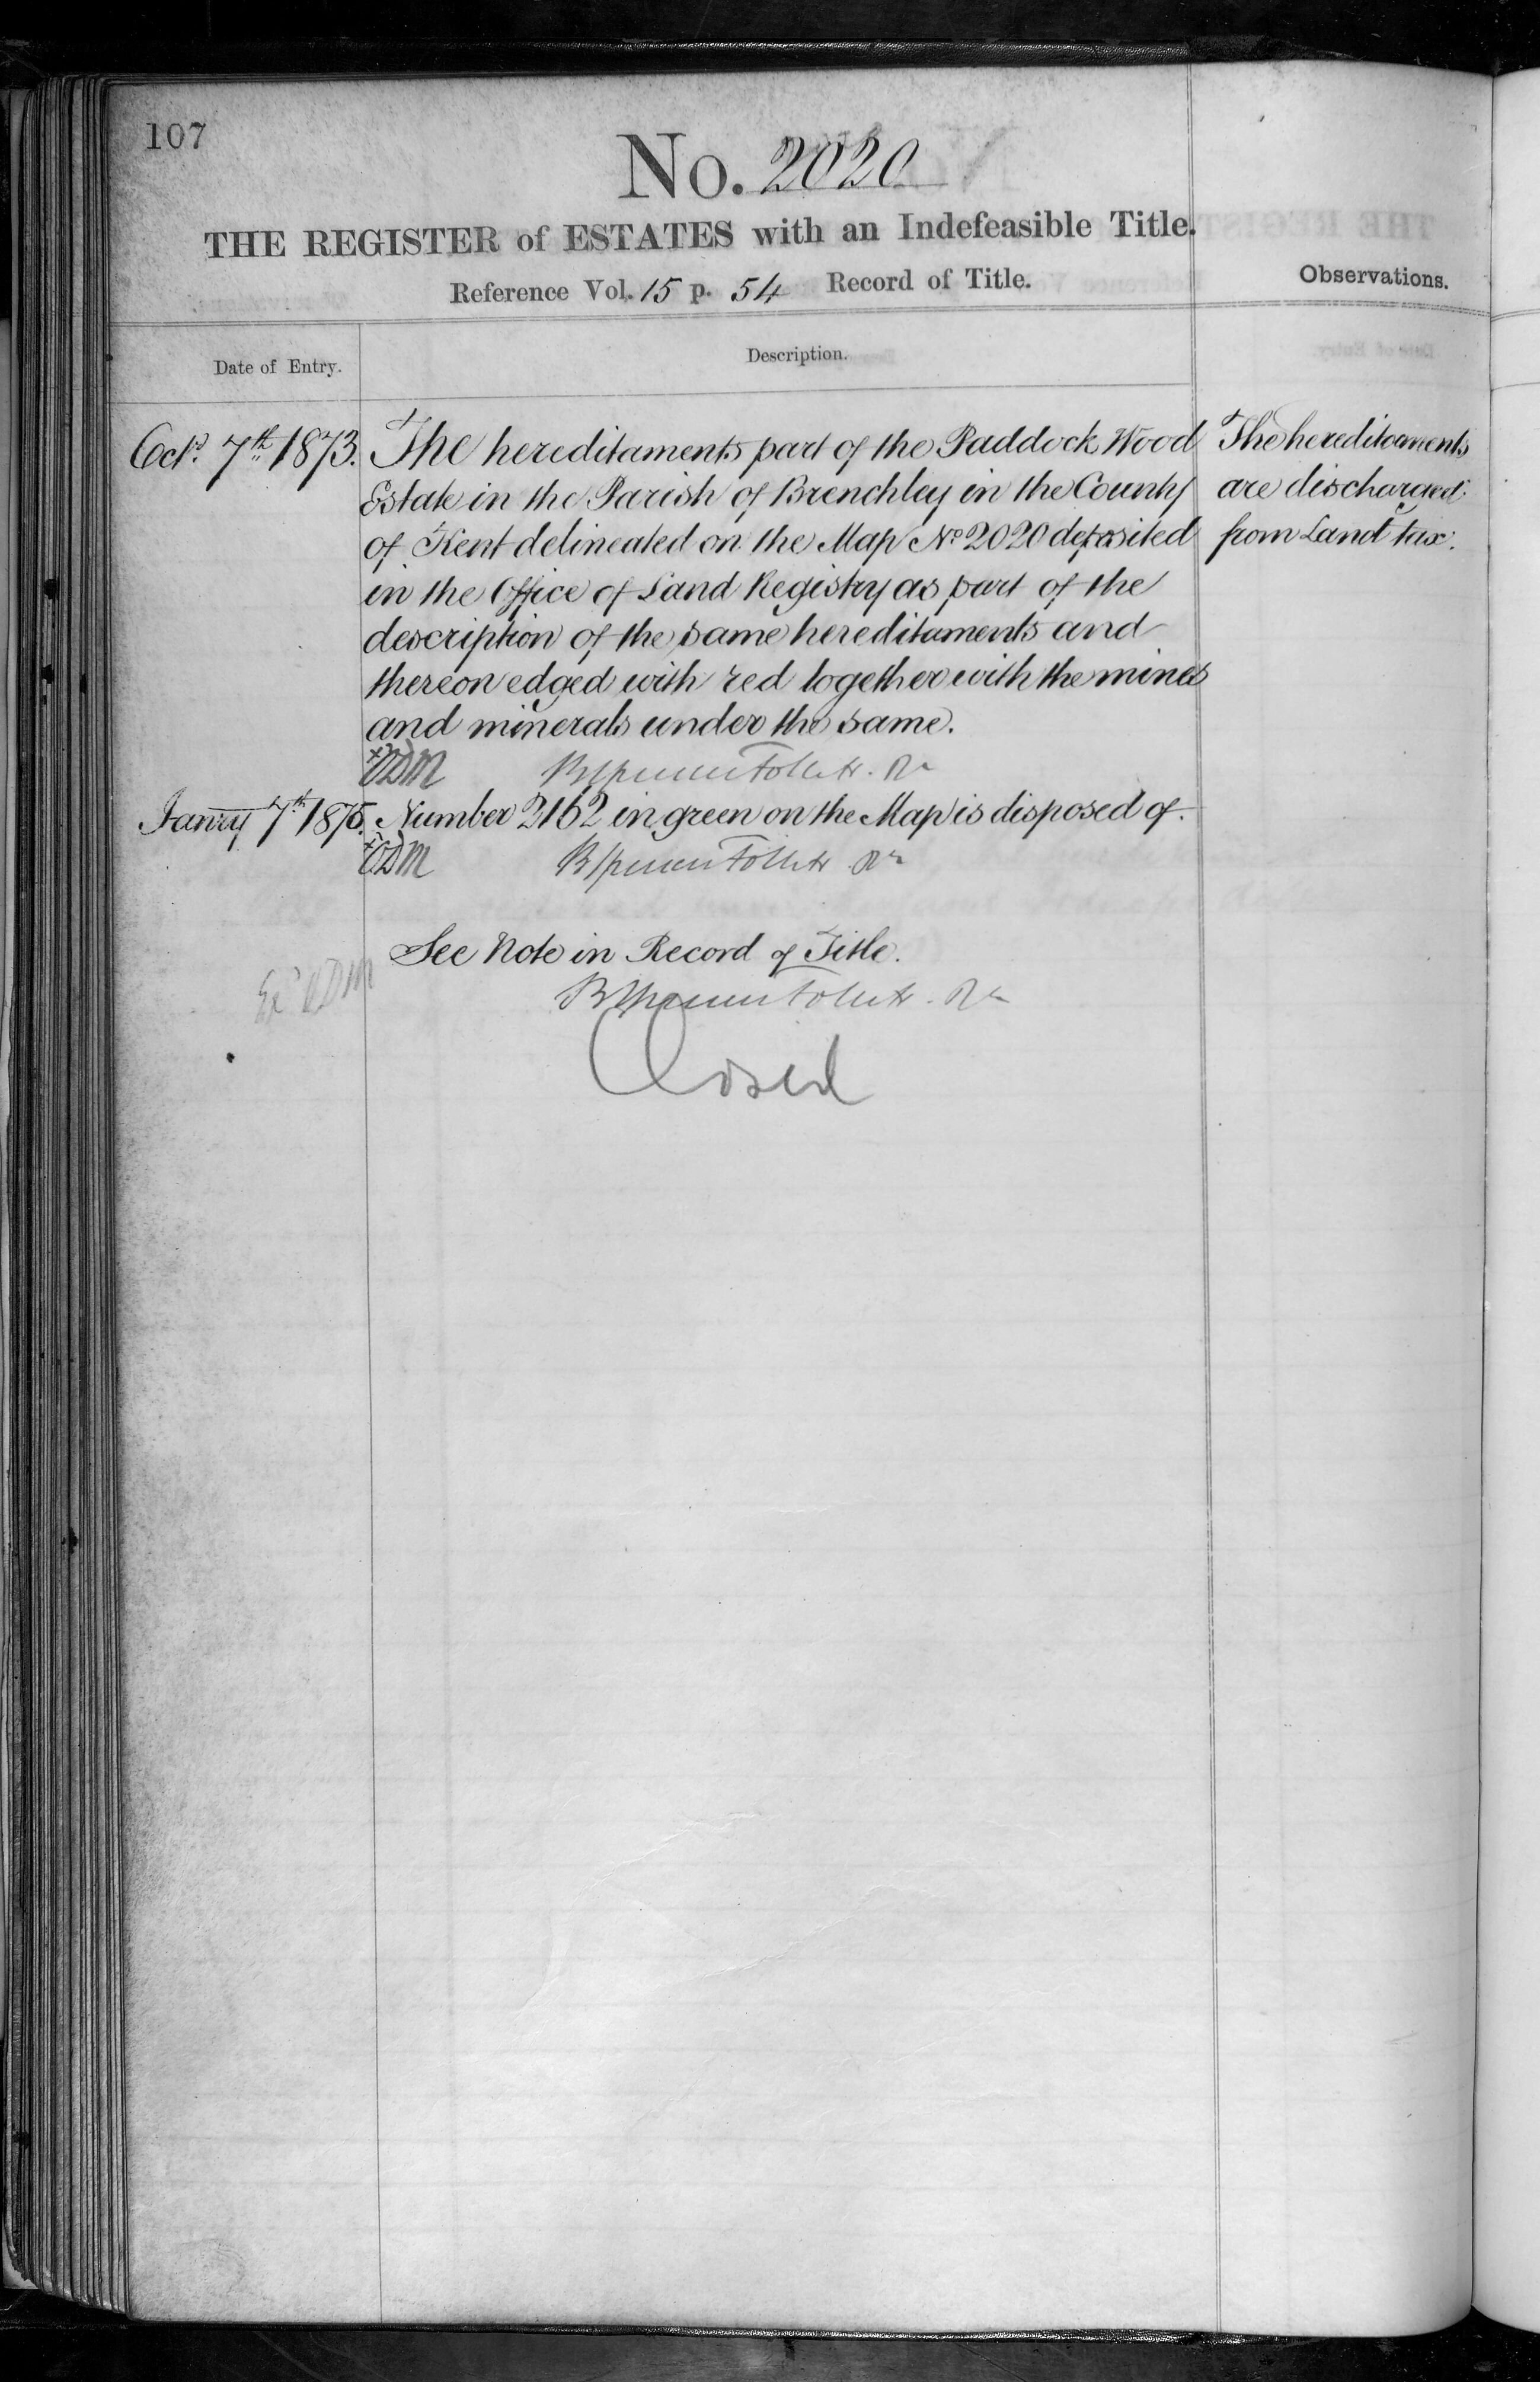 107
No. 2020
THE REGISTER of ESTATES with an Indefeasible Title.
Reference Vol. 15 p. 54 Record of Title.
Observations.
Date of Entry.
Description.
Octr. 7th 1873.
The hereditaments part of the Paddock Wood
Estate in the Parish of Brenchley in the County
of Kent delineated on the Map No 2020 deposited
in the Office of Land Registry as part of the
description of the same hereditaments and
thereon edged with red together with the mines
and minerals under the same.
The hereditaments
are discharged
from Land tax.
Janry 7th 1875.
Number 2162 in green on the Map is disposed of.
See Note in Record of Title.
Closed